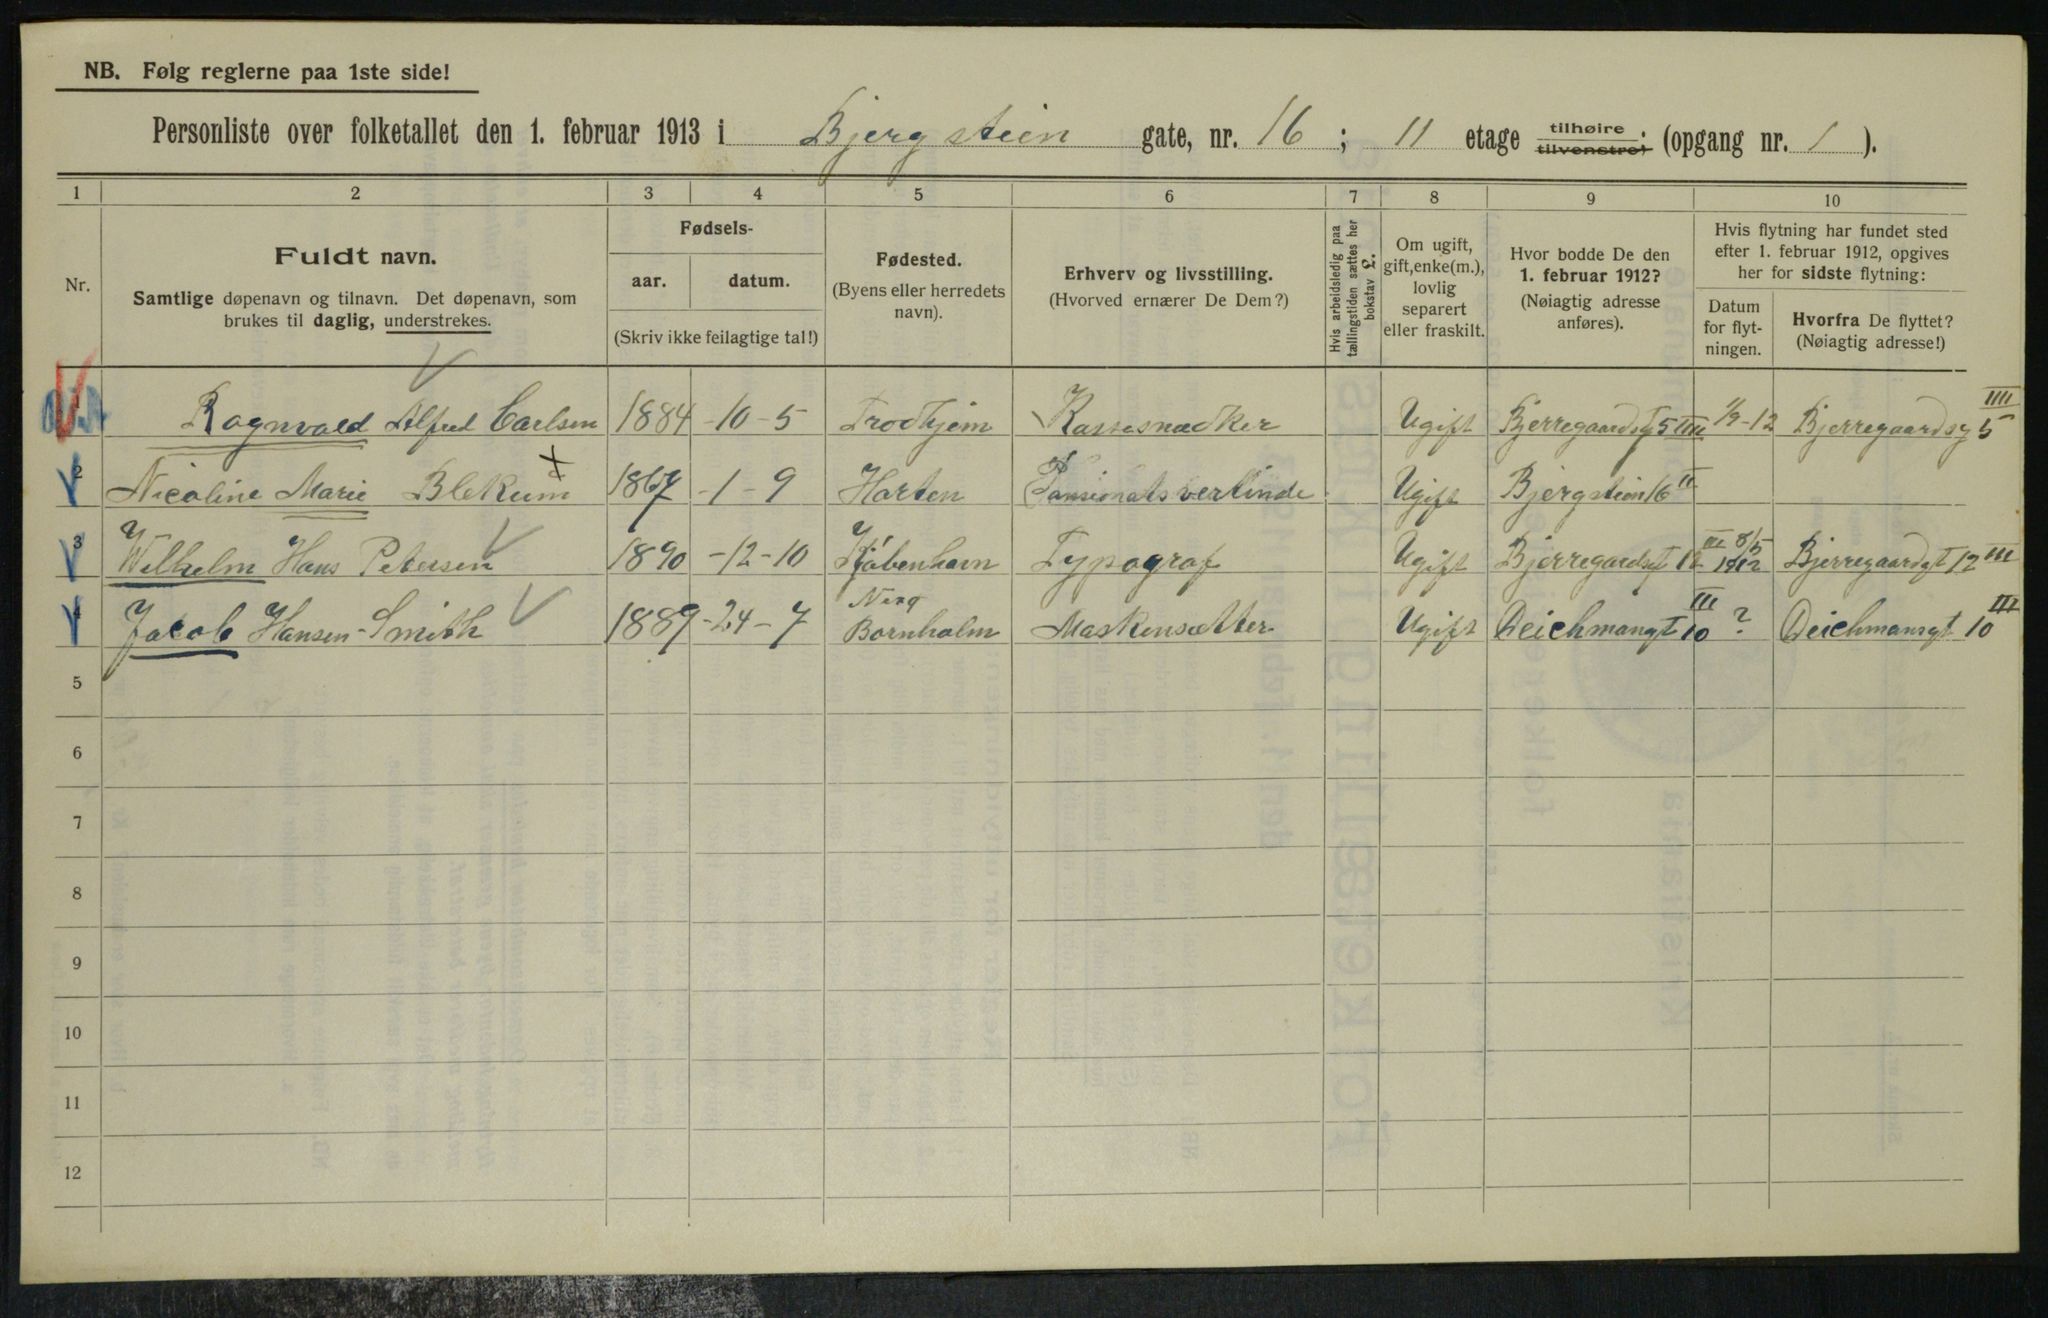 NB. Følg reglerne paa 1ste side!
Personliste over folketallet den 1. februar 1913 i Bjergstien gate, nr. 16 ; 11 etage tilhøire tilvenstre; (opgang nr. 1 ).
1 2 3 4 5 6 7 8 9 10
Nr.
Fuldt navn.
Samtlige døpenavn og tilnavn. Det døpenavn, som
brukes til daglig, understrekes.
Fødsels-
aar. datum.
(Skriv ikke feilagtige tal!)
Fødested.
(Byens eller herredets
navn).
Erhverv og livsstilling.
(Hvorved ernærer De Dem?)
Hvis arbeidsledig paa
tællingstiden sættes her
bokstav £.
Om ugift,
gift, enke(m.),
lovlig
separert
eller fraskilt.
Hvor bodde De den
1. februar 1912?
(Nøiagtig adresse
anføres).
Hvis flytning har fundet sted
efter 1. februar 1912, opgives
her for sidste flytning:
Datum
for flyt-
ningen.
Hvorfra De flyttet?
(Nøiagtig adresse!)
1 Ragnvald Alfred Carlsen 1884 -10-5 Trodhjem Kassesnedker Ugift Bjerregaardsg 5 IIII 1/9-12 Bjerregaardsg 5 IIII
2 Nicoline Marie Blekum 1867 -1-9 Horten Pansionatsvertinde Ugift Bjergstien 16 II
3 Wilhelm Hans Petersen 1890 -12-10 Kjøbenhavn Typograf Ugift Bjerregaardsgt 12 III 8/5 1912 Bjerregaardgt 12 III
4 Jacob Hansen-Smith 1889 -24-7 Nexø Bornholm Maskensætter Ugift Deichmangt 10 III ? Deichmansgt 10 III
5
6
7
8
9
10
11
12